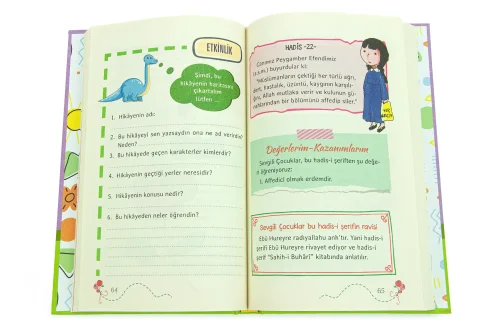 ETKİNLİK
Şimdi, bu
hikâyenin haritasını
çıkartalım
lütfen ...
1. Hikâyenin adı:
2. Bu hikâyeyi sen yazsaydın ona ne ad verirdin?
Neden?
3. Bu hikâyede geçen karakterler kimlerdir?
4. Hikâyenin geçtiği yerler neresidir?
5. Hikâyenin konusu nedir?
6. Bu hikâyeden neler öğrendin?
64
HADİS -22-
Canımız Peygamber Efendimiz
(s.a.v.) buyurdular ki:
"Müslümanların çektiği her türlü ağrı,
dert, hastalık, üzüntü, kaygının karşılı-
ğını, Allah mutlaka verir ve kulunun gü-
nahlarından bir bölümünü affedip siler."
Değerlerim-Kazanımlarım
Sevgili Çocuklar, bu hadis-i şeriften şu değe-
ri öğreniyoruz:
1. Affedici olmak erdemdir.
Sevgili Çocuklar bu hadis-i şerifin ravisi
Ebû Hureyre radıyallahu anh'tır. Yani hadis-i
şerifi Ebû Hureyre rivayet ediyor ve hadis-i
şerif "Sahih-i Buhârî" kitabında anlatılır.
65